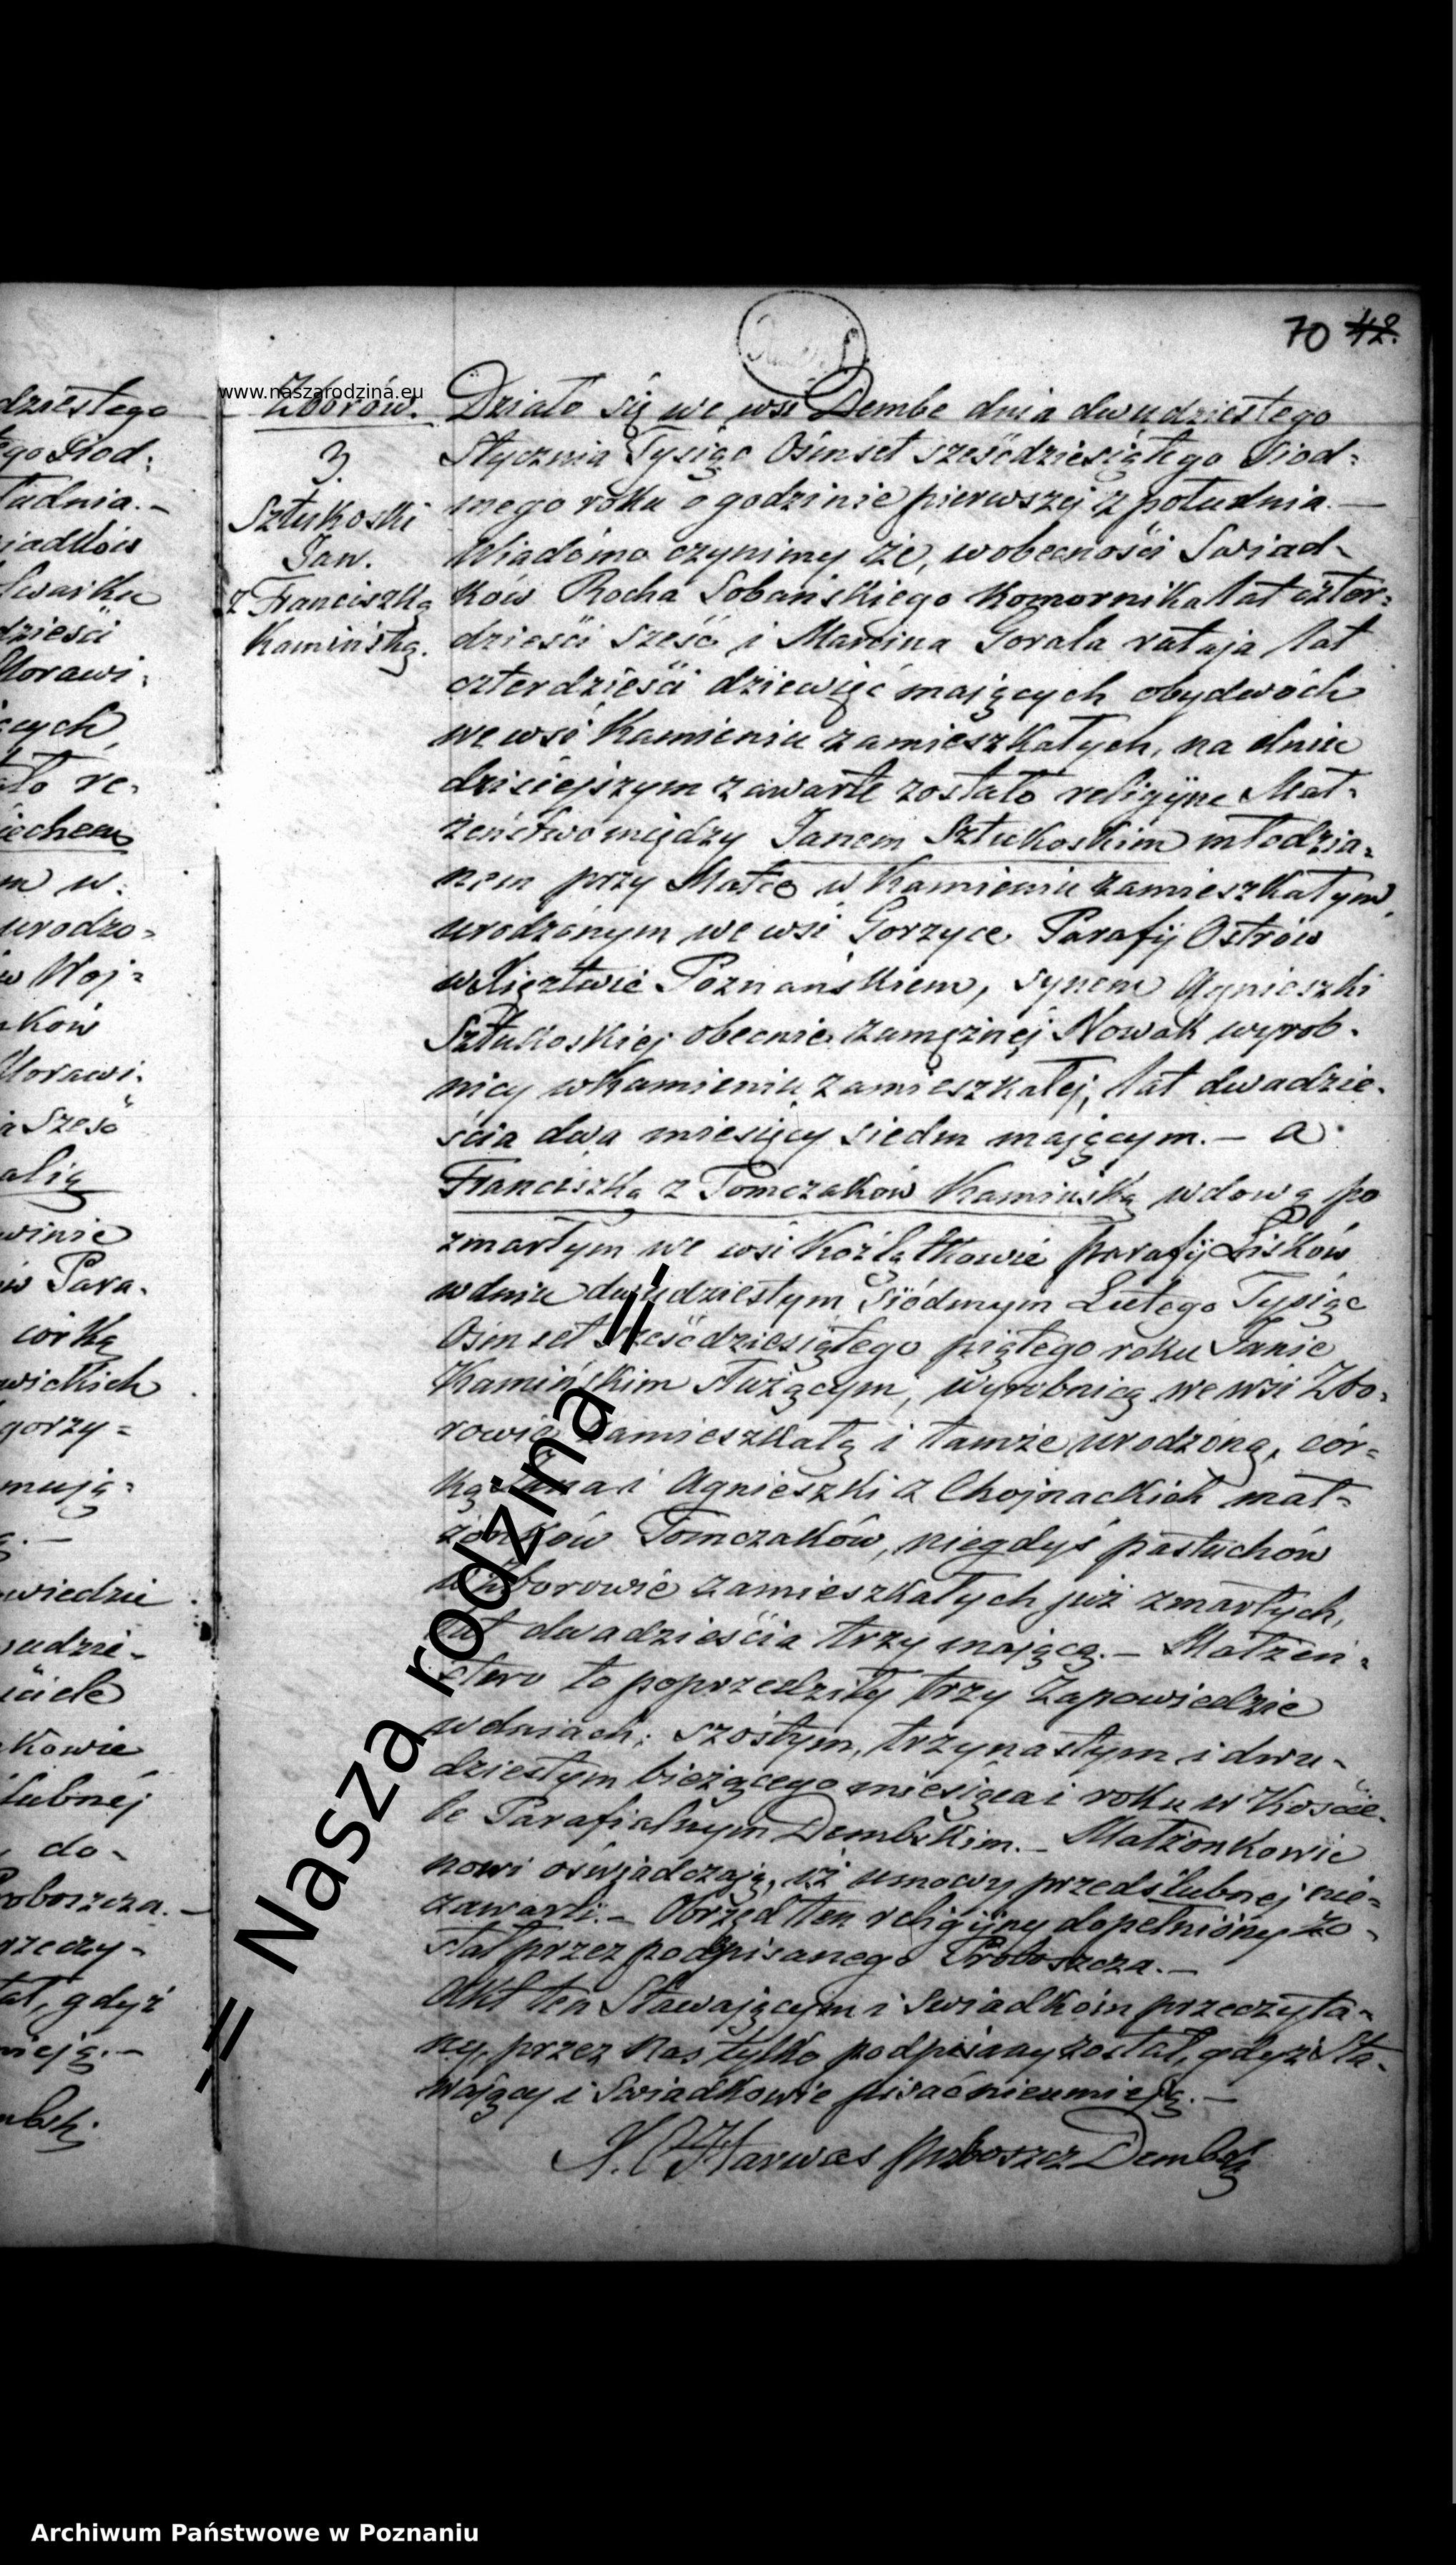 70 42.
www.naszarodzina.eu
dziestego
ego Siod:
łudnia.-
iadków
dzieści
Morawi:
ących
ło re:
iechem
m w.
urodzo=
w Woj=
ków
Morawi.
i Sześć
alią
winie
w Para.
córką
wickich
gorzy=
mują=
wiedzie
ściele
kowie
ślubnéj
, do-
Proboszcza.-
rzeczy-
tał, gdyż
mieją.-
Zborów.
3.
Sztukoski
Jan.
z Franciszką
Kamińską.
Działo się we wsi Dembe dnia dwudziestego
Stycznia Tysiąc Ośmset sześćdziesiątego Siod=
mego roku o godzinie pierwszej z południa.—
Wiadomo czynimy że, wobecności Świad-
ków Rocha Sobańskiego Komornika lat czter=
dzieści sześć i Marcina Gorala rataja lat
czterdzieści dziewięć mających obydwóch
we wsi Kamieniu zamieszkałych, na dniu
dzisiejszym zawarte zostało religijne Mał-
żeństwo między Janem Sztukoskim młodzia=
nem przy Matce w Kamieniu zamieszkałym,
urodzonym we wsi Gorzyce Parafij Ostrów
w Xięztwie Poznańskiem, synem Agnieszki
Sztukoskiej obecnie zamężnej Nowak wyrob-
nicy w Kamieniu zamieszkałej, lat dwadzie-
ścia dwa miesięcy siedm mającym.— a
Franciszką z Tomczaków Kamińską wdową po
zmarłym we wsi Koźlątkowie parafij Lisków
w dniu dwudziestym Siódmym Lutego Tysiąc
Ośmset sześćdziesiątego piątego roku Janie
Kamińskim służącym, wyrobnicą we wsi Zbo=
rowie zamieszkałą i tamże urodzoną, cór=
ką Jana i Agnieszki z Chojnackich mał=
żonków Tomczaków, niegdyś pastuchów
w Zborowie zamieszkałych już zmarłych,
lat dwadzieścia trzy mającą.— Małżeń=
stwo to poprzedziły trzy Zapowiedzie
w dniach: szóstym, trzynastym i dwu-
dziestym bieżącego miesiąca i roku w Kościе-
le Parafialnym Dembskim.— Małżonkowie
nowi oświadczają, iż umowy przedślubnej nie=
zawarli.— Obrzęd ten religijny dopełniony zo-
stał przez podpisanego Proboszcza.—
Akt ten Stawającym i Świadkom przeczyta-
ny, przez Nas tylko podpisany został, gdyż Sta-
wający i Świadkowie pisać nieumieją.—
proboszcz Dembski
= Nasza rodzina =
Archiwum Państwowe w Poznaniu